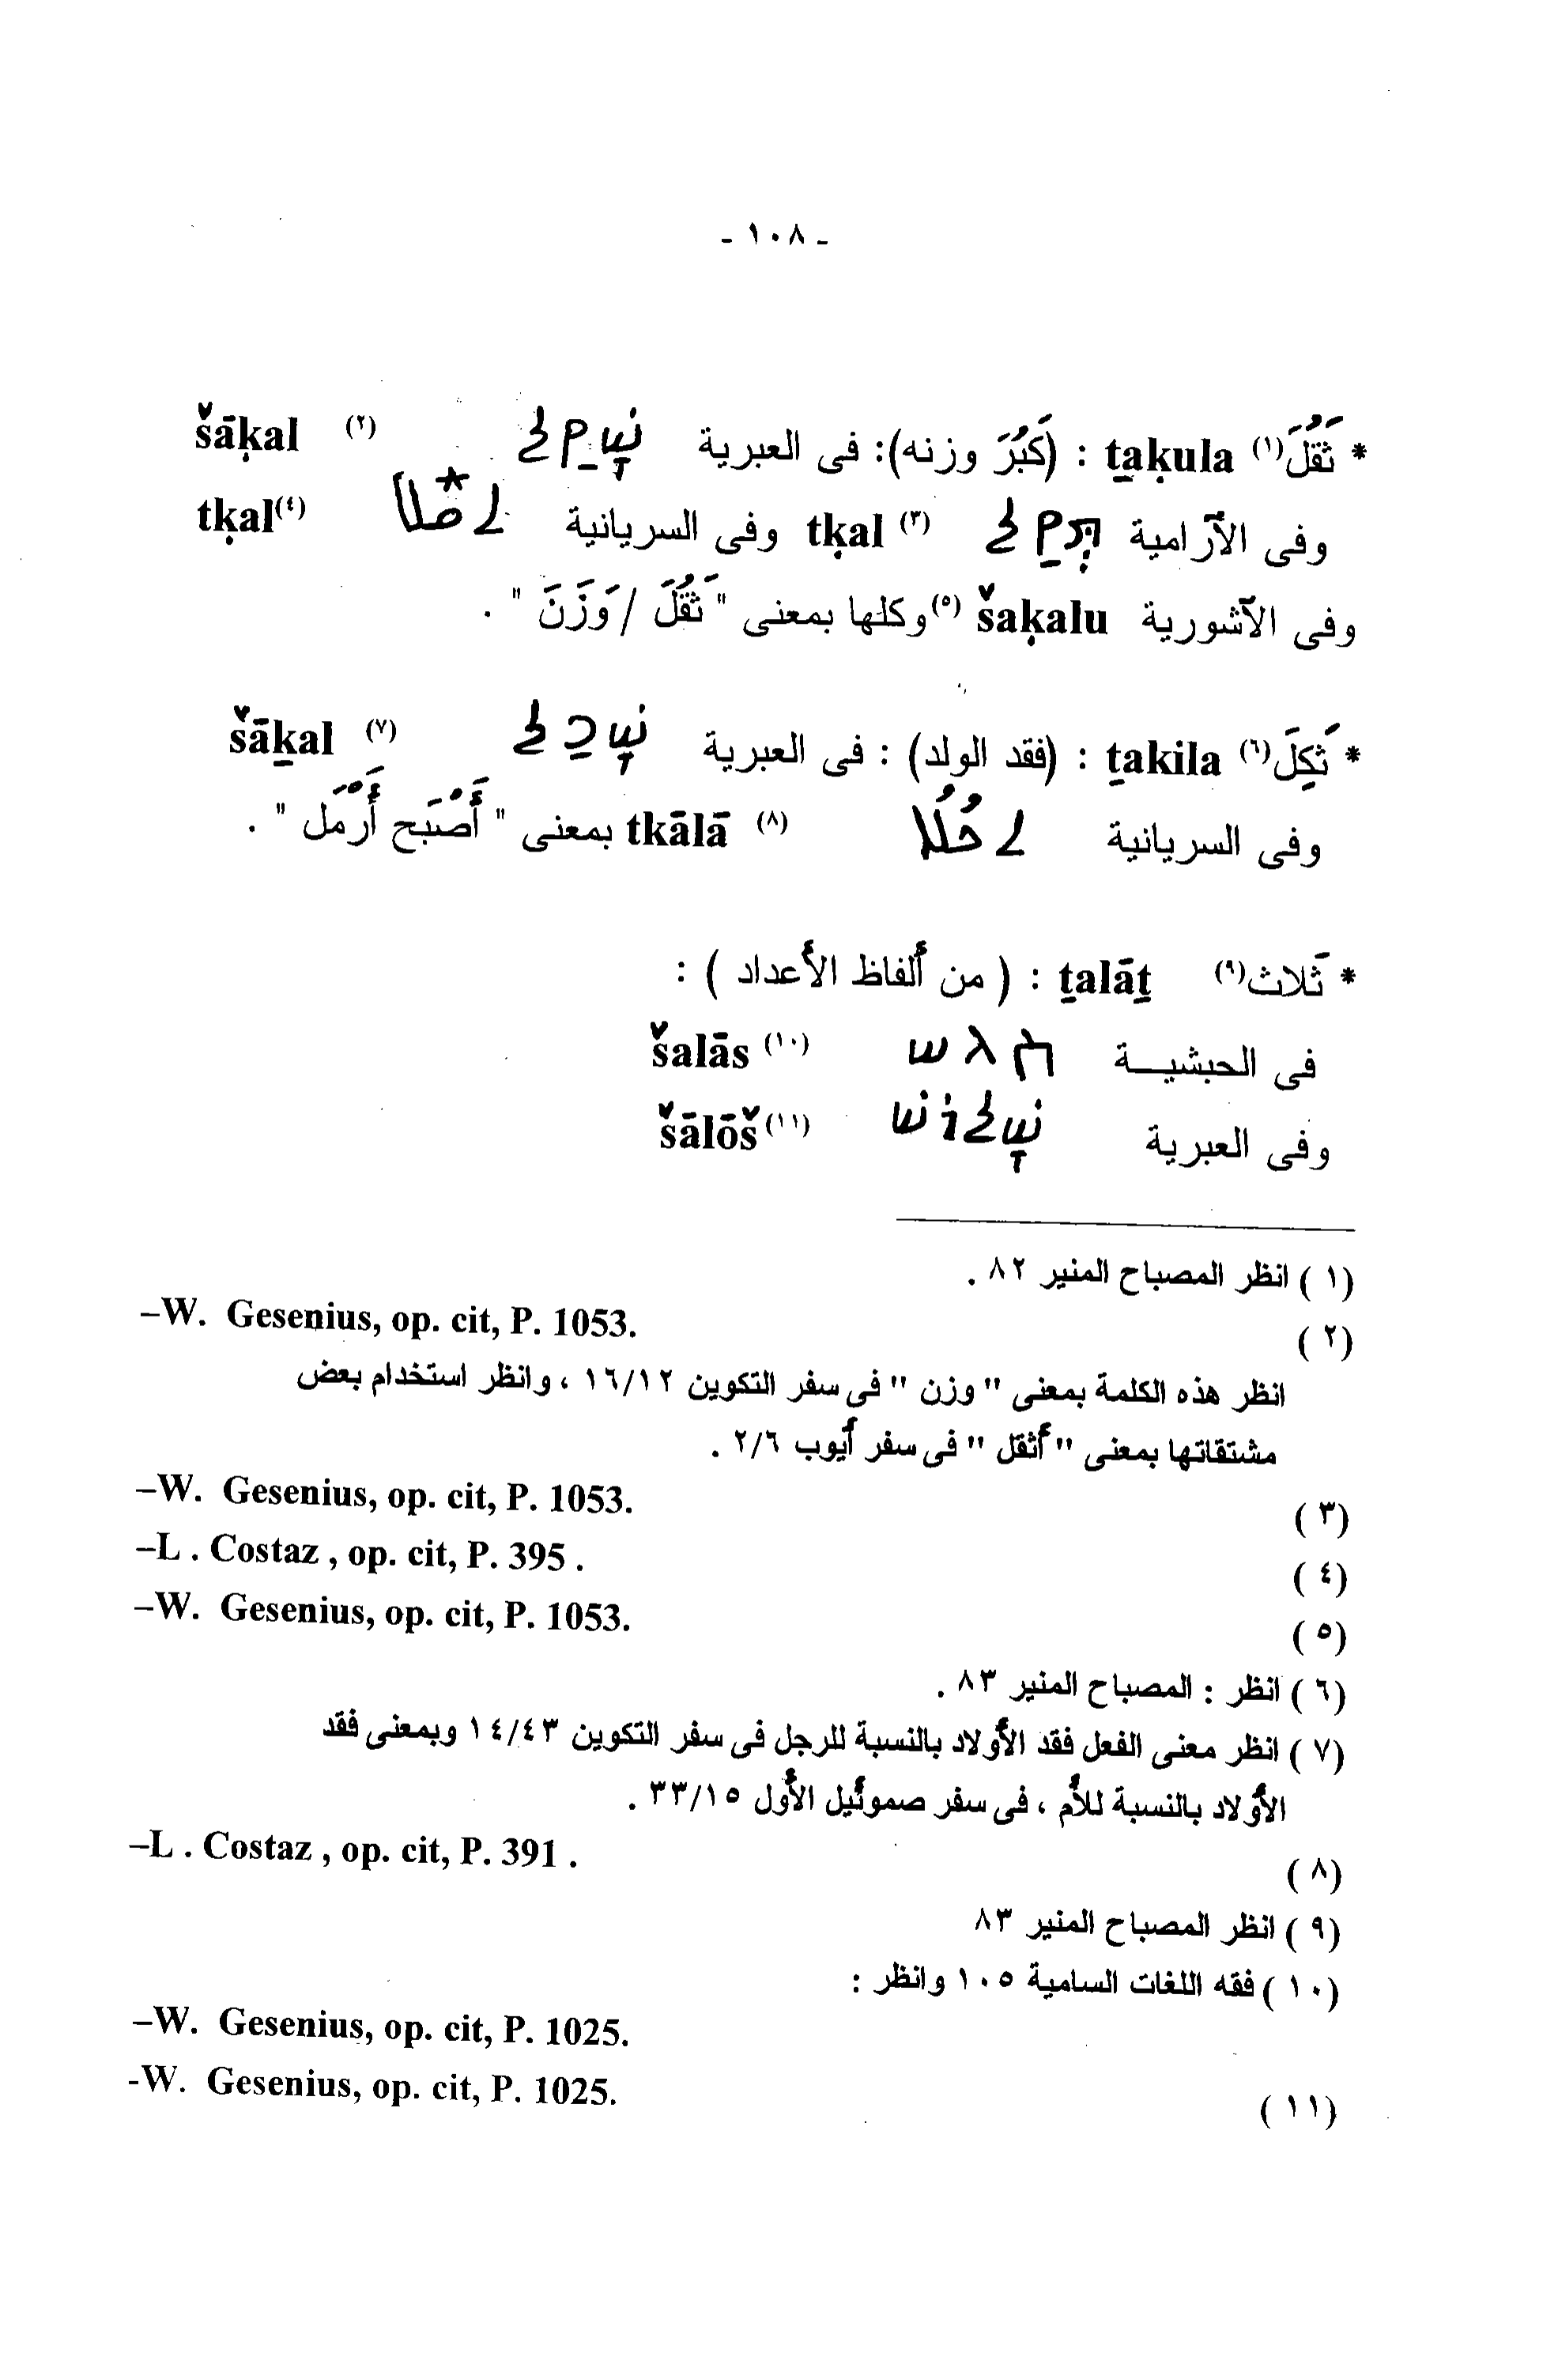 - ١٠٨ -
* ثَقُلَ(١) ṯaḳula : (كَبُرَ وزنه): فى العبرية שָׁקַל (٢) šāḳal
وفى الآرامية תְּקַל (٣) tḳal وفى السريانية (٤)tḳal
وفى الآشورية šaḳalu (٥)وكلها بمعنى " ثَقُلَ / وَزَنَ " .
* ثَكِلَ(٦) ṯakila : (فقد الولد) : فى العبرية שָׁכַל (٧) šāḵal
وفى السريانية (٨) tkālā بمعنى " أَصْبَح أَرْمَل " .
* ثَلاث(٩) ṯalāṯ : ( من ألفاظ الأعداد ) :
فى الحبشيــة (١٠) šalās
وفى العبرية שָׁלוֹשׁ (١١) šālōš
(١) انظر المصباح المنير ٨٢ .
(٢) –W. Gesenius, op. cit, P. 1053.
انظر هذه الكلمة بمعنى " وزن " فى سفر التكوين ١٦/١٢ ، وانظر استخدام بعض
مشتقاتها بمعنى " أثقل " فى سفر أيوب ٢/٦ .
(٣) –W. Gesenius, op. cit, P. 1053.
(٤) –L . Costaz , op. cit, P. 395 .
(٥) –W. Gesenius, op. cit, P. 1053.
(٦) انظر : المصباح المنير ٨٣ .
(٧) انظر معنى الفعل فقد الأولاد بالنسبة للرجل فى سفر التكوين ١٤/٤٣ وبمعنى فقد
الأولاد بالنسبة للأم ، فى سفر صموئيل الأول ٣٣/١٥ .
(٨) –L . Costaz , op. cit, P. 391 .
(٩) انظر المصباح المنير ٨٣
(١٠) فقه اللغات السامية ١٠٥ وانظر :
–W. Gesenius, op. cit, P. 1025.
(١١) -W. Gesenius, op. cit, P. 1025.